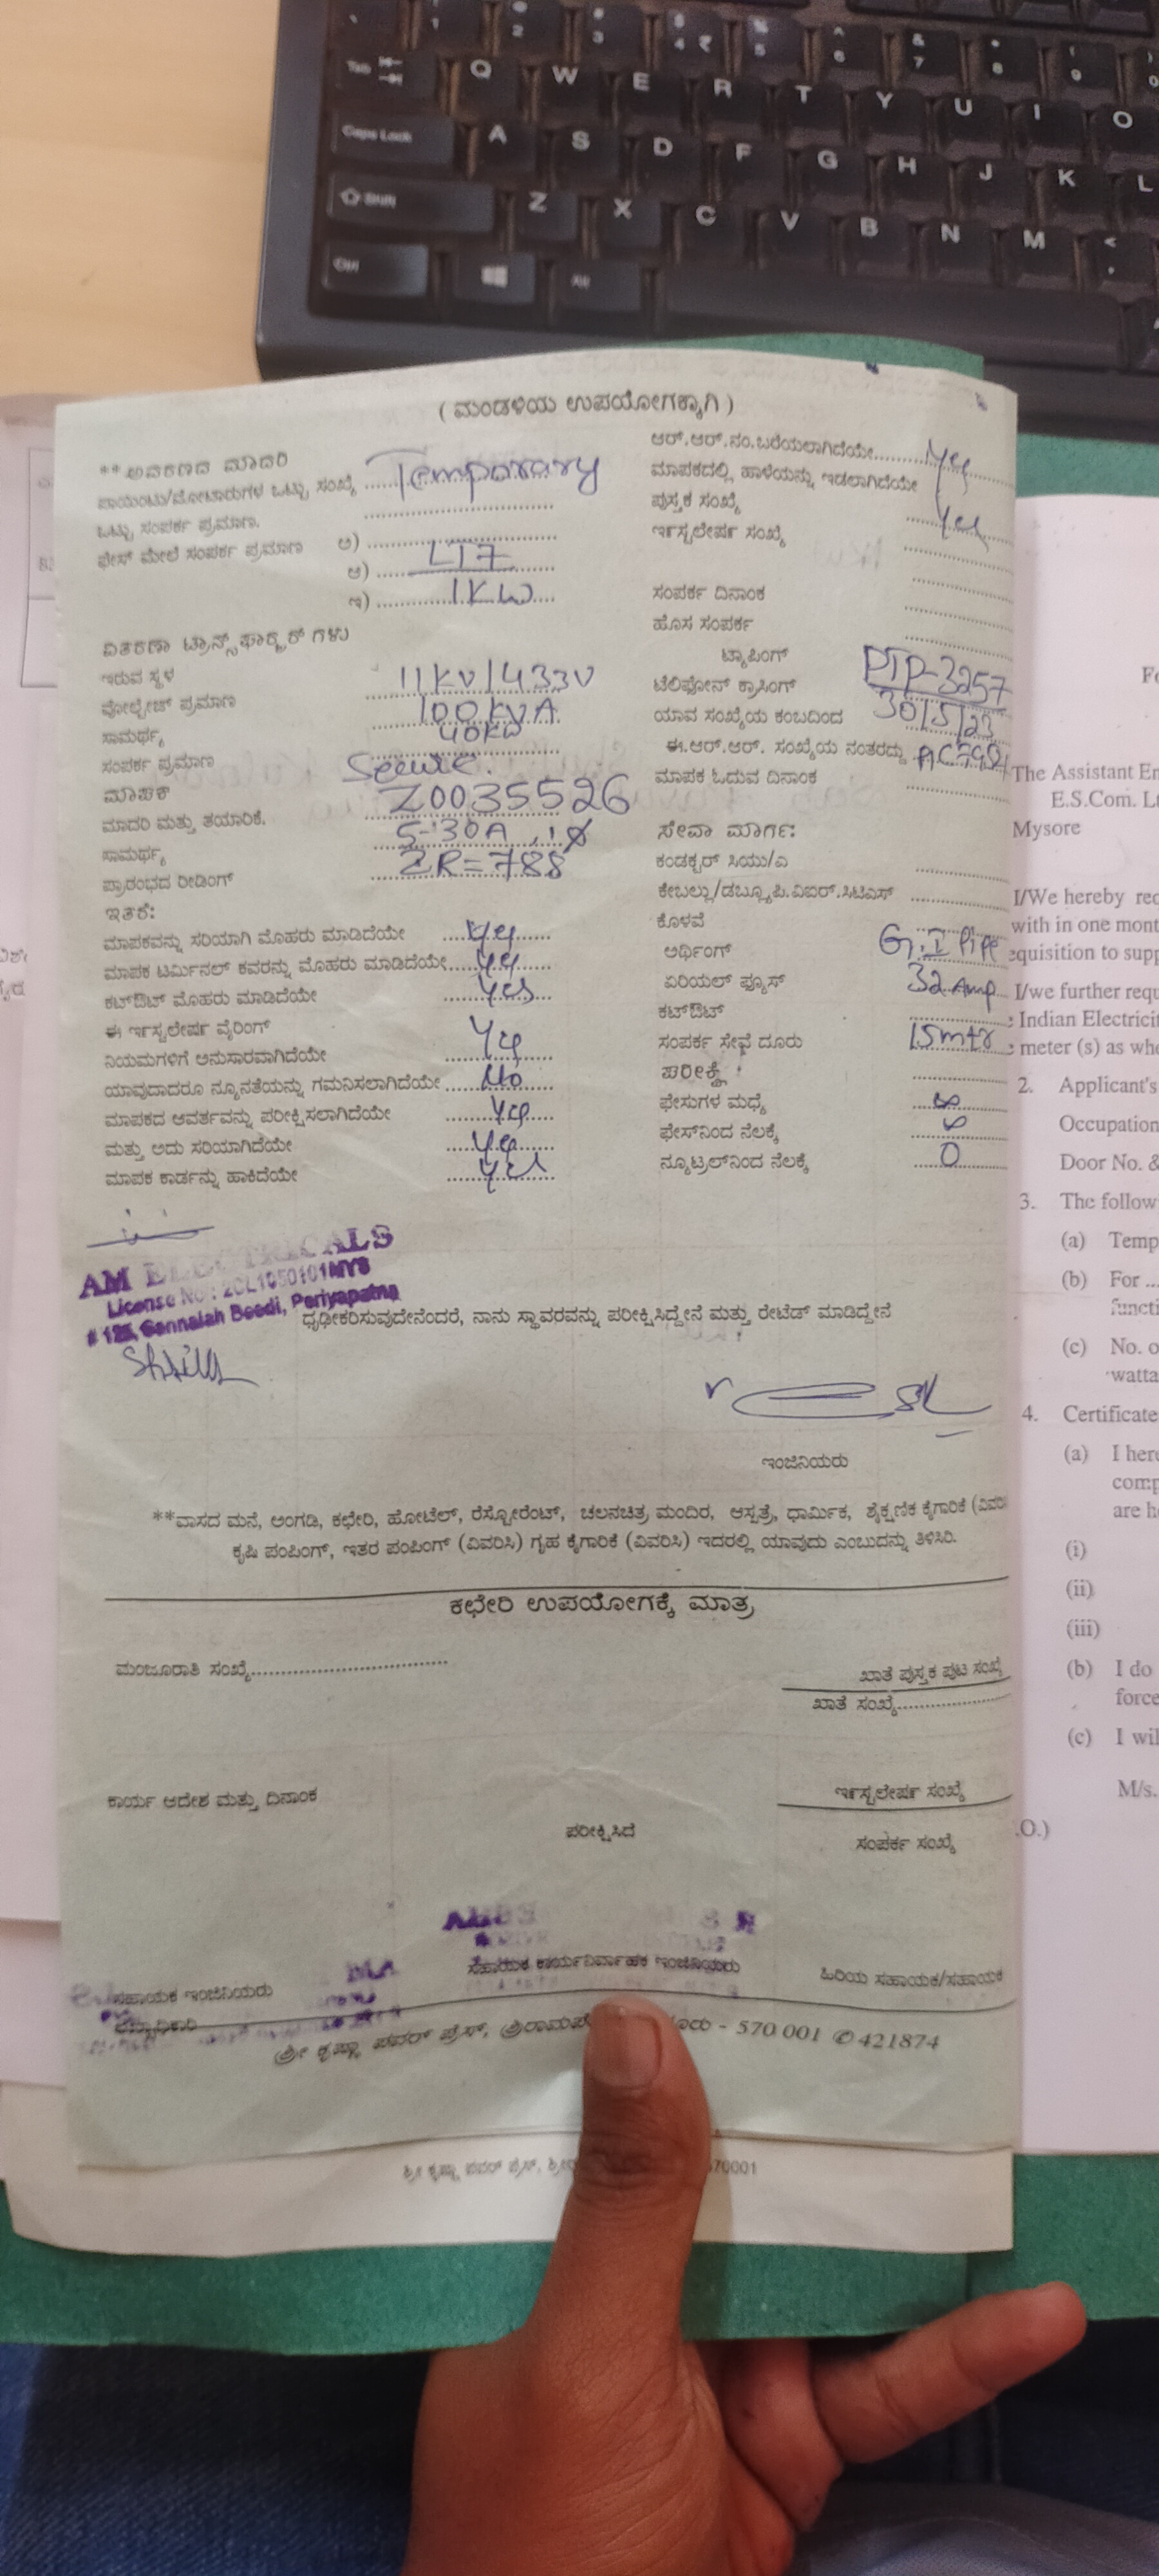 Tab
Q W E R T Y U I O
Caps Lock A S D F G H J K L
Shift Z X C V B N M <
Ctrl Alt
( ಮಂಡಳಿಯ ಉಪಯೋಗಕ್ಕಾಗಿ )
**ಆವರಣದ ಮಾದರಿ
ಪಾಯಿಂಟು/ಮೋಟಾರುಗಳ ಒಟ್ಟು ಸಂಖ್ಯೆ Temporary
ಒಟ್ಟು ಸಂಪರ್ಕ ಪ್ರಮಾಣ.
ಫೇಸ್ ಮೇಲೆ ಸಂಪರ್ಕ ಪ್ರಮಾಣ ಅ)
ಆ) LT7
ಇ) 1KW
ವಿತರಣಾ ಟ್ರಾನ್ಸ್‌ಫಾರ್ಮರ್ ಗಳು
ಇರುವ ಸ್ಥಳ
ವೋಲ್ಟೇಜ್ ಪ್ರಮಾಣ 11KV/433V
ಸಾಮರ್ಥ್ಯ 100KVA
ಸಂಪರ್ಕ ಪ್ರಮಾಣ 40KW
ಮಾಪಕ Secure.
ಮಾದರಿ ಮತ್ತು ತಯಾರಿಕೆ. Z0035526
ಸಾಮರ್ಥ್ಯ 5-30A, 1Ø
ಪ್ರಾರಂಭದ ರೀಡಿಂಗ್ IR=788
ಇತರೆ:
ಮಾಪಕವನ್ನು ಸರಿಯಾಗಿ ಮೊಹರು ಮಾಡಿದೆಯೇ yes
ಮಾಪಕ ಟರ್ಮಿನಲ್ ಕವರನ್ನು ಮೊಹರು ಮಾಡಿದೆಯೇ yes
ಕಟ್‌ಔಟ್ ಮೊಹರು ಮಾಡಿದೆಯೇ yes
ಈ ಇನ್‌ಸ್ಟಲೇಷನ್ ವೈರಿಂಗ್
ನಿಯಮಗಳಿಗೆ ಅನುಸಾರವಾಗಿದೆಯೇ Yes
ಯಾವುದಾದರೂ ನ್ಯೂನತೆಯನ್ನು ಗಮನಿಸಲಾಗಿದೆಯೇ No
ಮಾಪಕದ ಆವರ್ತವನ್ನು ಪರೀಕ್ಷಿಸಲಾಗಿದೆಯೇ Yes
ಮತ್ತು ಅದು ಸರಿಯಾಗಿದೆಯೇ Yes
ಮಾಪಕ ಕಾರ್ಡನ್ನು ಹಾಕಿದೆಯೇ Yes
ಆರ್.ಆರ್.ನಂ.ಬರೆಯಲಾಗಿದೆಯೇ Yes
ಮಾಪಕದಲ್ಲಿ ಹಾಳೆಯನ್ನು ಇಡಲಾಗಿದೆಯೇ
ಪುಸ್ತಕ ಸಂಖ್ಯೆ Yes
ಇನ್‌ಸ್ಟಲೇಷನ್ ಸಂಖ್ಯೆ
ಸಂಪರ್ಕ ದಿನಾಂಕ
ಹೊಸ ಸಂಪರ್ಕ
ಟ್ಯಾಪಿಂಗ್ PTP-3257
ಟೆಲಿಫೋನ್ ಕ್ರಾಸಿಂಗ್
ಯಾವ ಸಂಖ್ಯೆಯ ಕಂಬದಿಂದ 30/5/23
ಈ.ಆರ್.ಆರ್. ಸಂಖ್ಯೆಯ ನಂತರದ್ದು
ಮಾಪಕ ಓದುವ ದಿನಾಂಕ
ಸೇವಾ ಮಾರ್ಗ:
ಕಂಡಕ್ಟರ್ ಸಿಯು/ಎ
ಕೇಬಲ್ಲು/ಡಬ್ಲ್ಯೂ.ಪಿ.ವಿಐಆರ್.ಸಿಟಿಎಸ್
ಕೊಳವೆ
ಅರ್ಥಿಂಗ್ G.I Pipe
ಏರಿಯಲ್ ಫ್ಯೂಸ್ 32 Amp
ಕಟ್‌ಔಟ್
ಸಂಪರ್ಕ ಸೇವೆ ದೂರು 15mtr
ಪರೀಕ್ಷೆ :
ಫೇಸುಗಳ ಮಧ್ಯೆ ∞
ಫೇಸ್‌ನಿಂದ ನೆಲಕ್ಕೆ ∞
ನ್ಯೂಟ್ರಲ್‌ನಿಂದ ನೆಲಕ್ಕೆ 0
AM ELECTRICALS
License No : 2CL1050101MYS
Beedi, Periyapatna
ಧೃಢೀಕರಿಸುವುದೇನೆಂದರೆ, ನಾನು ಸ್ಥಾವರವನ್ನು ಪರೀಕ್ಷಿಸಿದ್ದೇನೆ ಮತ್ತು ರೇಟೆಡ್ ಮಾಡಿದ್ದೇನೆ
ಇಂಜಿನಿಯರು
**ವಾಸದ ಮನೆ, ಅಂಗಡಿ, ಕಛೇರಿ, ಹೋಟೆಲ್, ರೆಸ್ಟೋರೆಂಟ್, ಚಲನಚಿತ್ರ ಮಂದಿರ, ಆಸ್ಪತ್ರೆ, ಧಾರ್ಮಿಕ, ಶೈಕ್ಷಣಿಕ ಕೈಗಾರಿಕೆ
ಕೃಷಿ ಪಂಪಿಂಗ್, ಇತರ ಪಂಪಿಂಗ್ (ವಿವರಿಸಿ) ಗೃಹ ಕೈಗಾರಿಕೆ (ವಿವರಿಸಿ) ಇದರಲ್ಲಿ ಯಾವುದು ಎಂಬುದನ್ನು ತಿಳಿಸಿರಿ.
ಕಛೇರಿ ಉಪಯೋಗಕ್ಕೆ ಮಾತ್ರ
ಮಂಜೂರಾತಿ ಸಂಖ್ಯೆ
ಖಾತೆ ಪುಸ್ತಕ ಪುಟ ಸಂಖ್ಯೆ
ಖಾತೆ ಸಂಖ್ಯೆ
ಕಾರ್ಯ ಆದೇಶ ಮತ್ತು ದಿನಾಂಕ
ಇನ್‌ಸ್ಟಲೇಷನ್ ಸಂಖ್ಯೆ
ಪರೀಕ್ಷಿಸಿದೆ
ಸಂಪರ್ಕ ಸಂಖ್ಯೆ
ಸಹಾಯಕ ಇಂಜಿನಿಯರು
ಸಹಾಯಕ ಕಾರ್ಯನಿರ್ವಾಹಕ ಇಂಜಿನಿಯರು
ಹಿರಿಯ ಸಹಾಯಕ/ಸಹಾಯಕ
ಶ್ರೀ ಕೃಷ್ಣಾ ಪವರ್ ಪ್ರೆಸ್, - 570 001 ✆ 421874
ಶ್ರೀ ಕೃಷ್ಣಾ ಪವರ್ ಪ್ರೆಸ್,
The Assistant
E.S.Com.
Mysore
I/We hereby
with in one
equisition to
I/we further
Indian
meter (s) as
2. Applicant's
Occupation
Door No. &
3. The
(a)
(b) For ...
(c) No.
4. Certificate
(a) I
are
(i)
(ii)
(iii)
(b) I do
force
(c) I
M/s.
.O.)